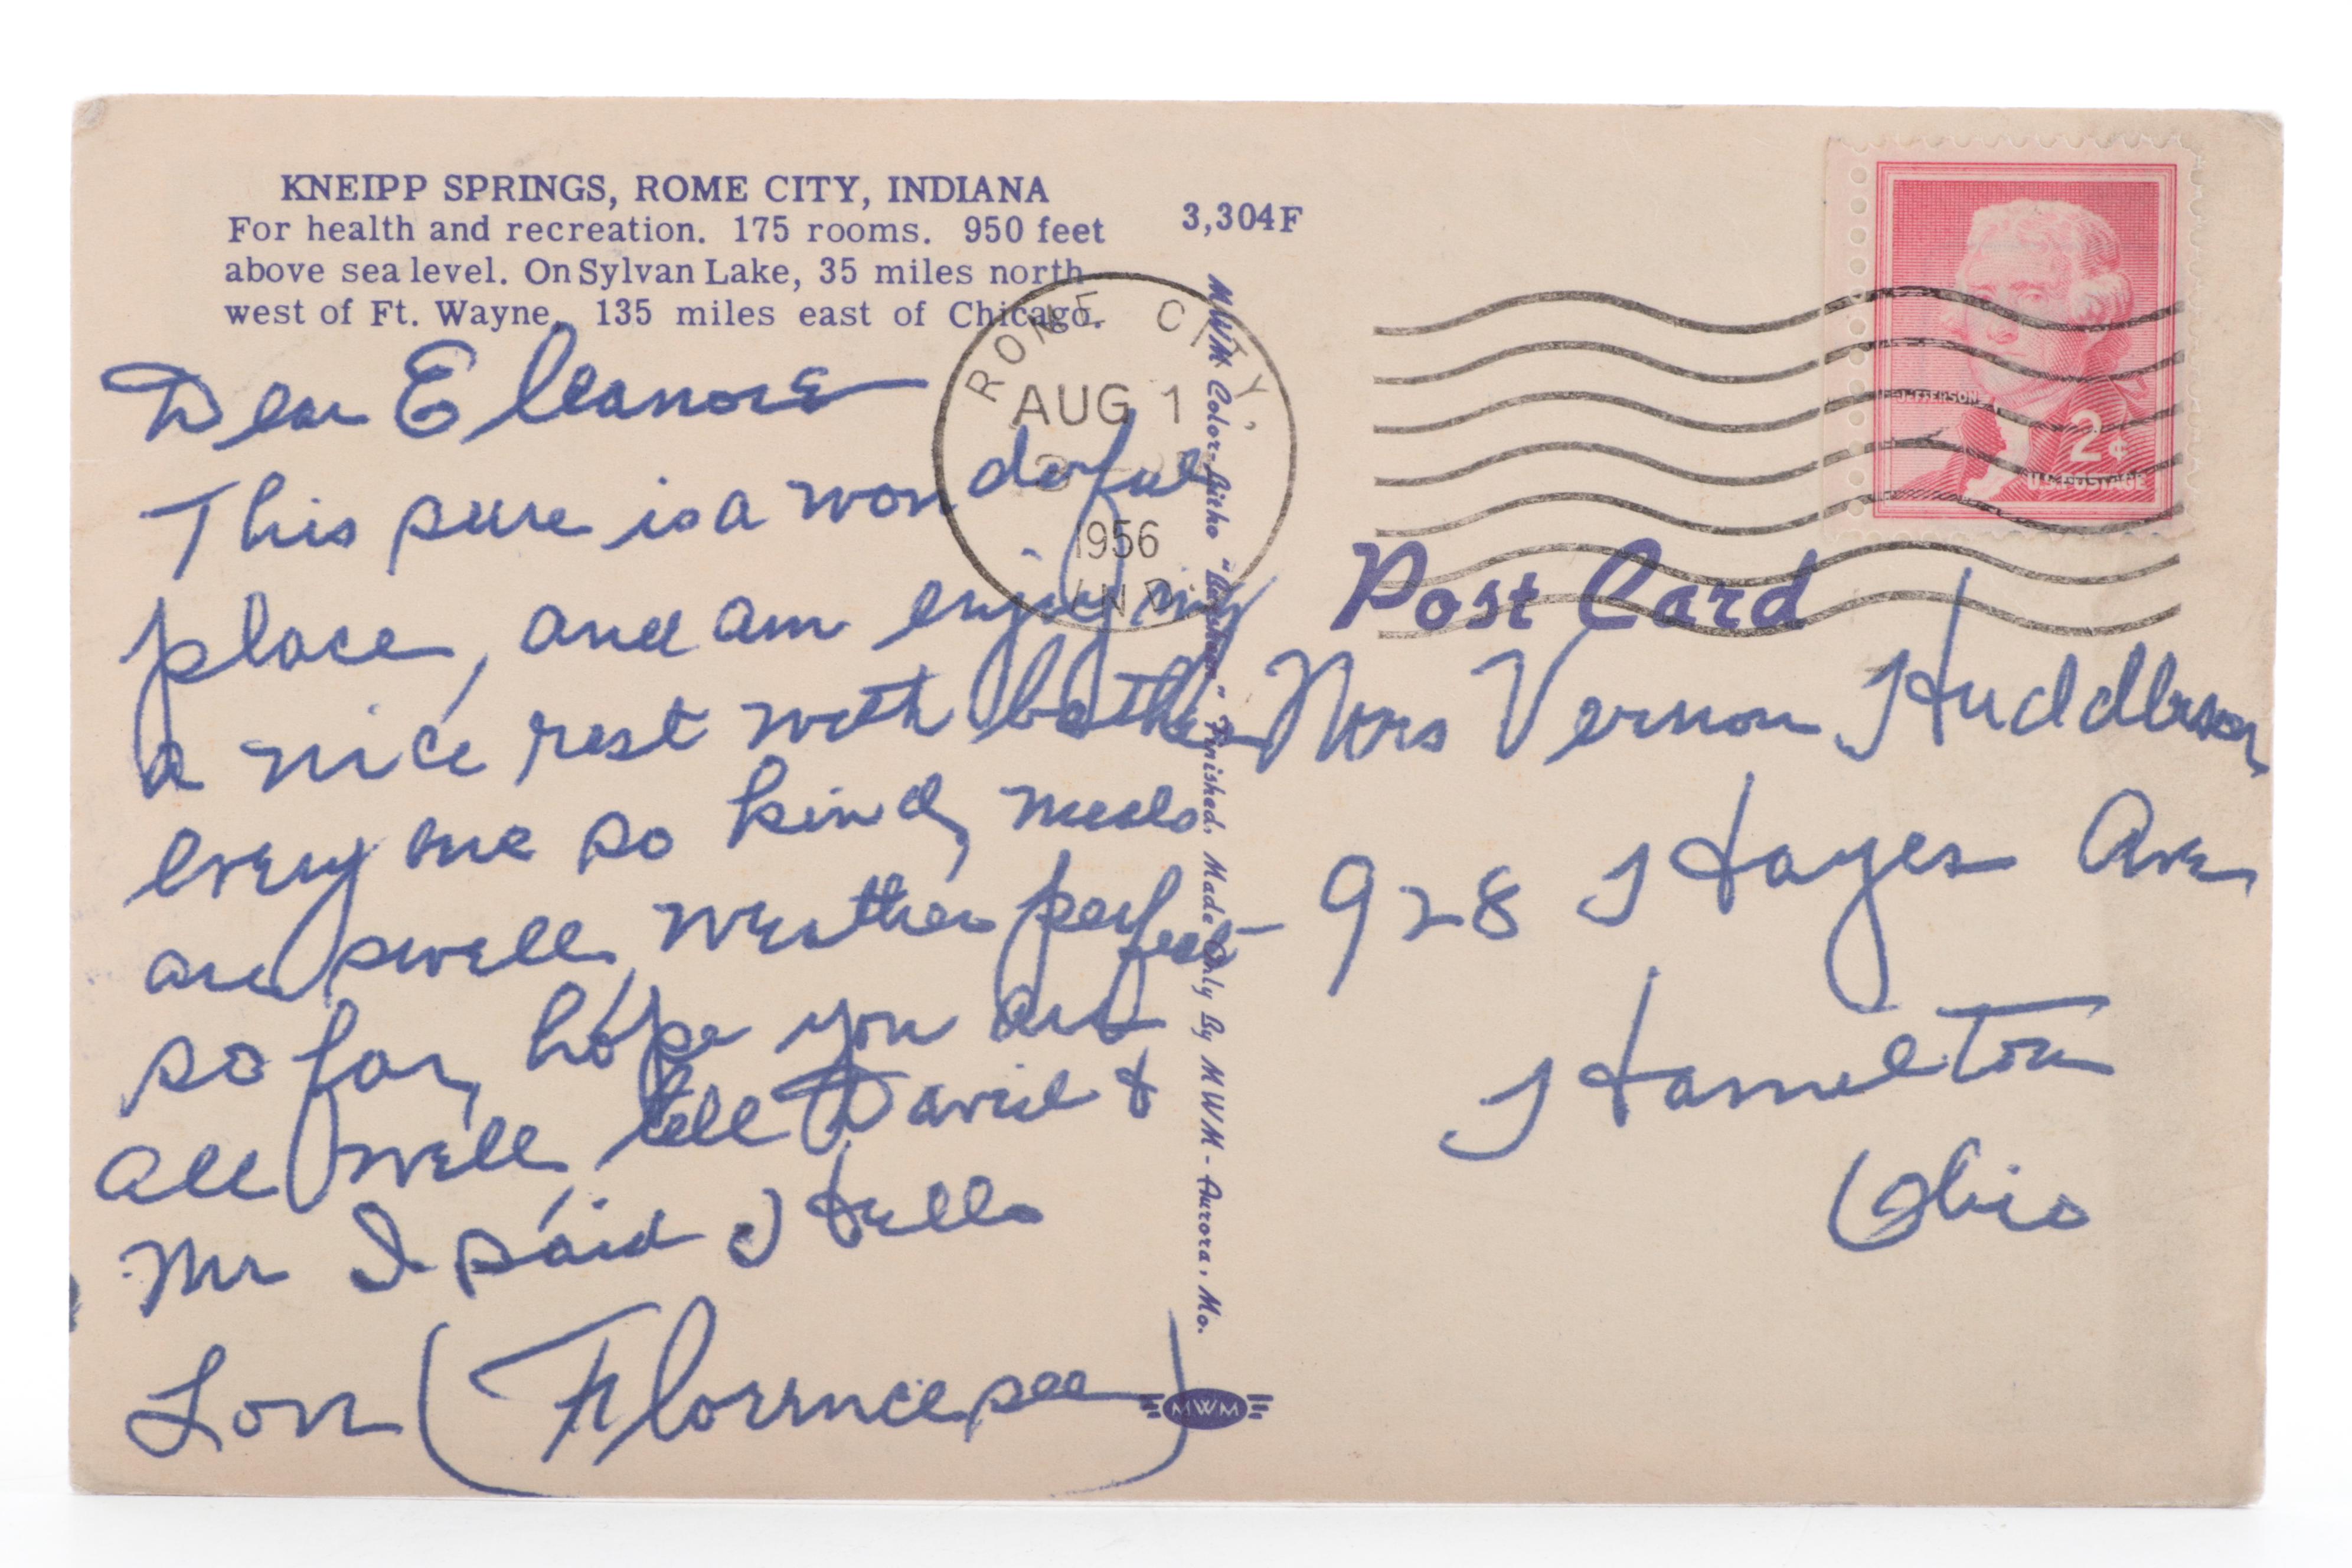 KNEIPP SPRINGS, ROME CITY, INDIANA
For health and recreation. 175 rooms. 950 feet
above sea level. On Sylvan Lake, 35 miles north
west of Ft. Wayne, 135 miles east of Chicago.
3,304F
Dear Eleanore
This sure is a wonderful
place, and am enjoying
a nice rest with baths
every one so kind, meals
are swell, weather perfect
so far, hope you are
all well, tell David &
Mr I said Hello
Love (Florence
ROME CITY,
AUG 1
1956
IND.
MWM Color-Litho Finished. Made Only By MWM - Aurora, Mo.
MWM
JEFFERSON
2¢
U.S. POSTAGE
Post Card
Mrs Vernon Huddleson
928 Hayes Ave
Hamilton
Ohio